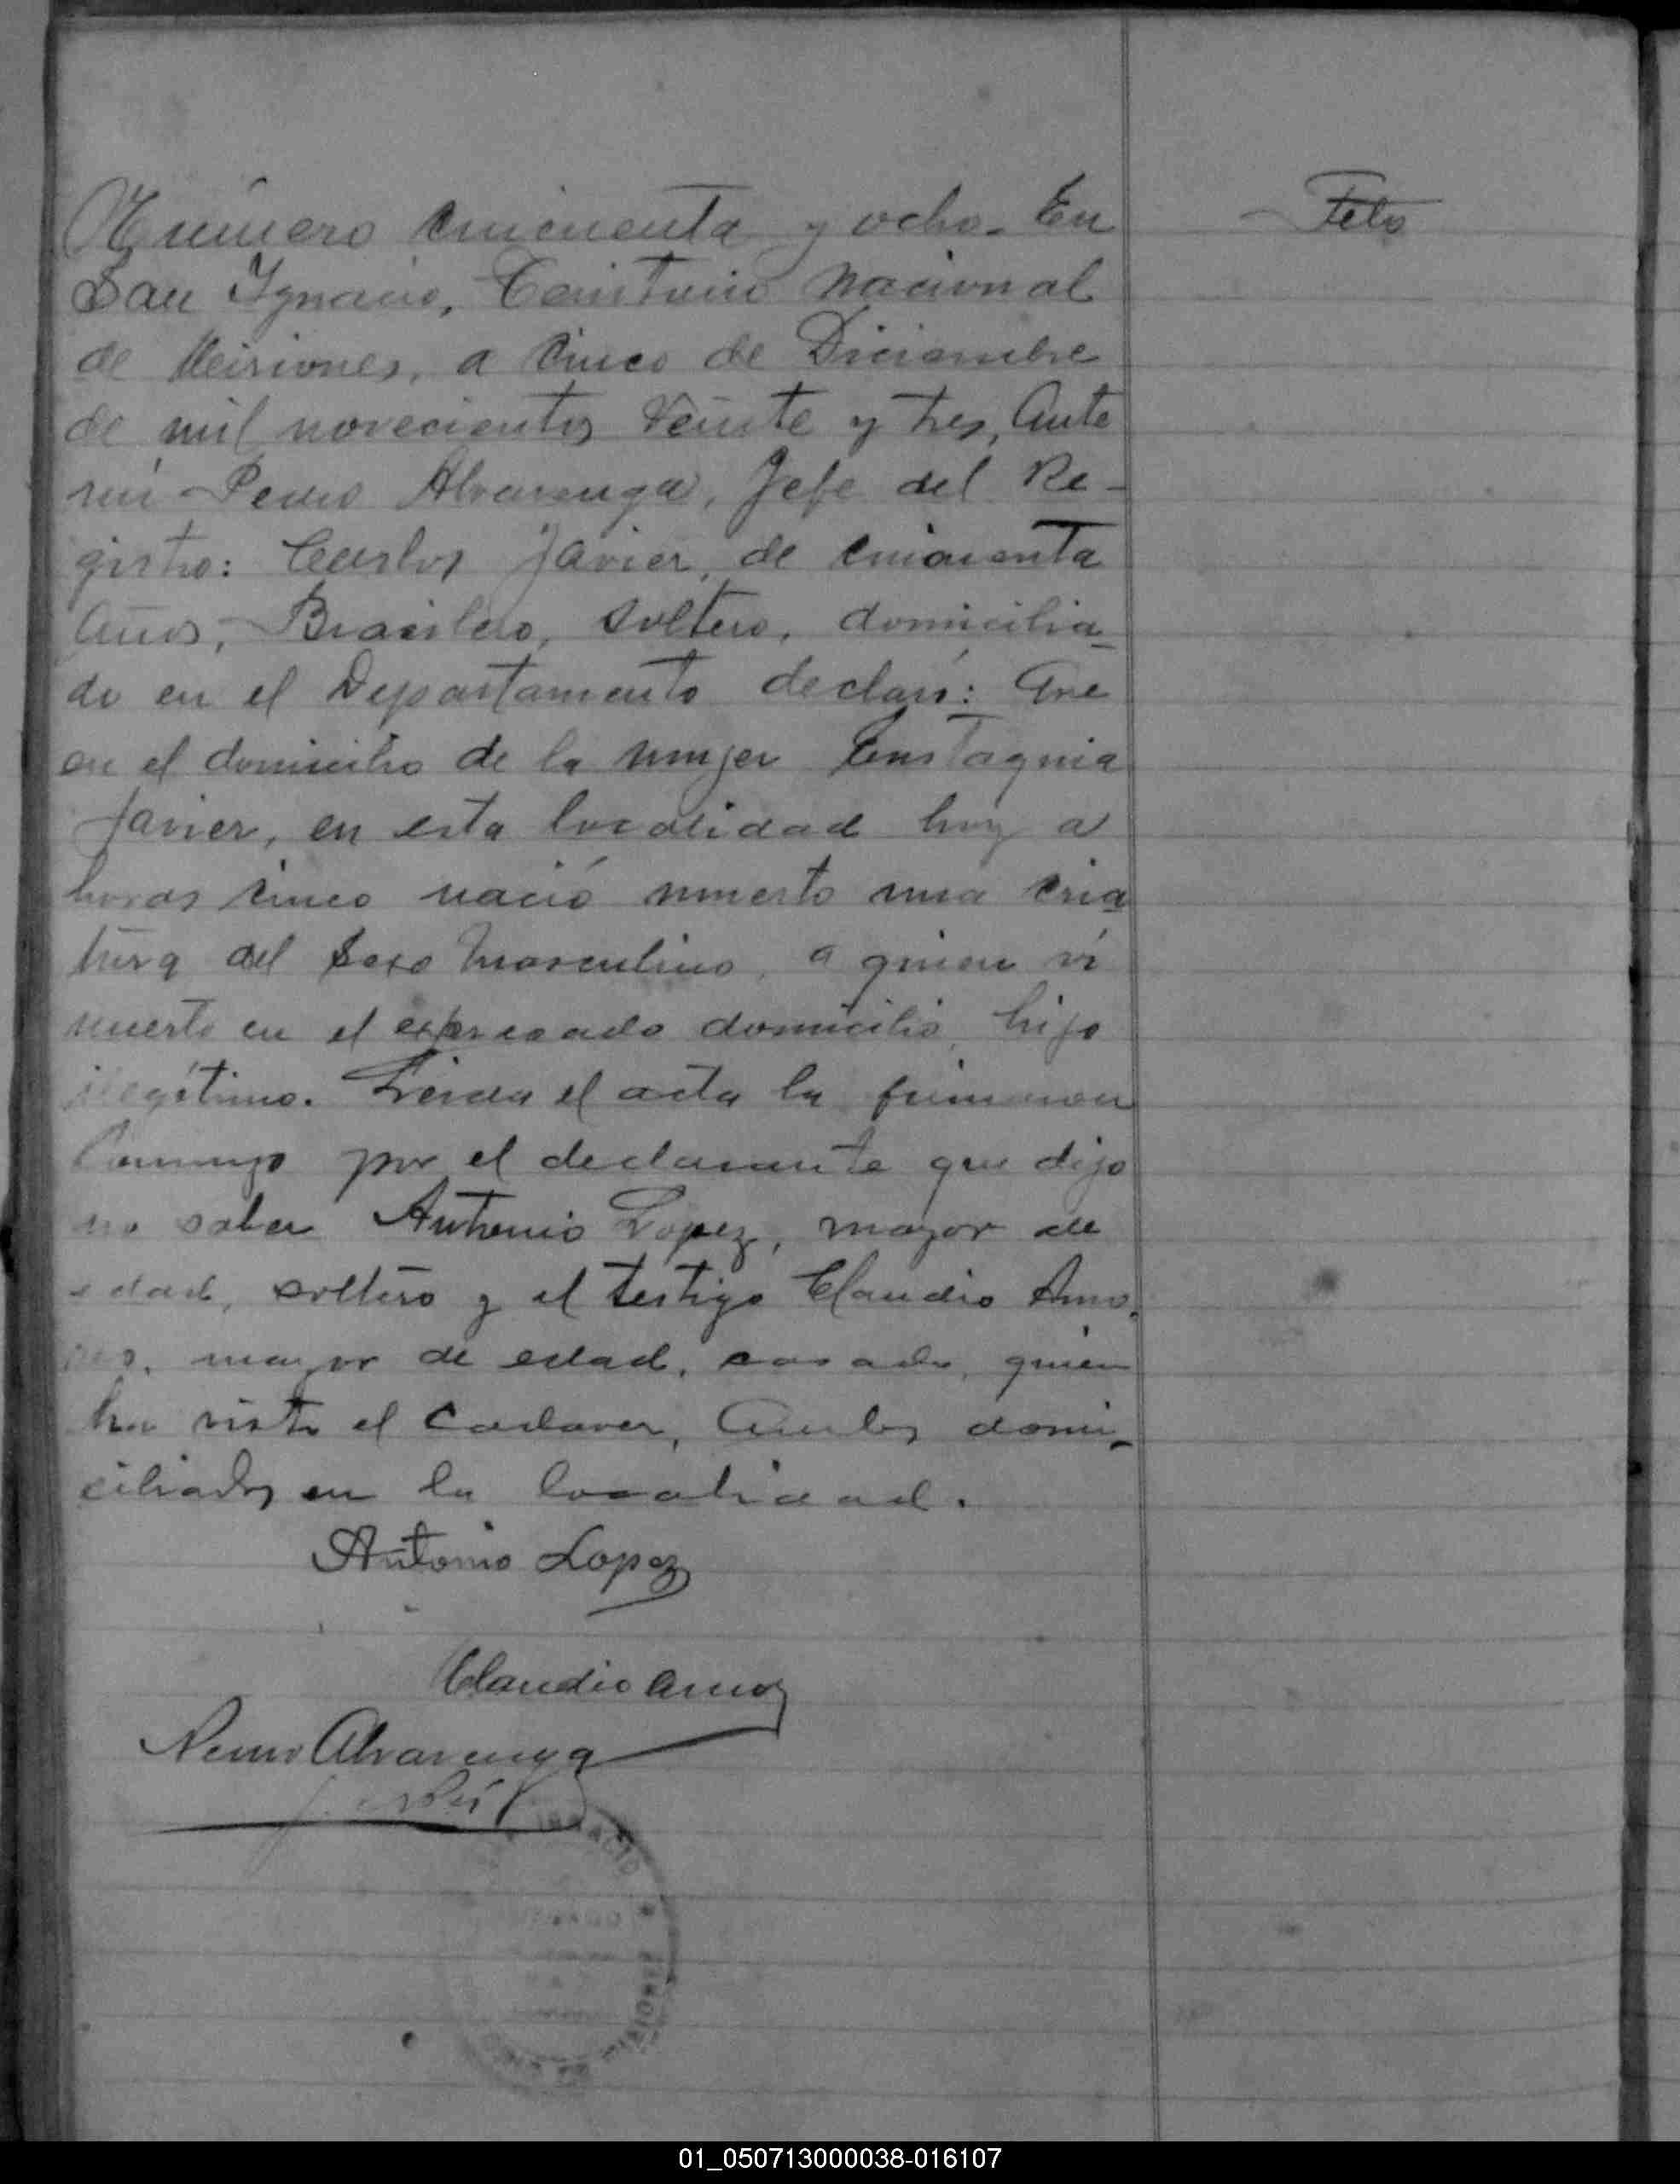 Número cincuenta y ocho. En
Feto
San Ignacio, Territorio Nacional
de Misiones, a cinco de Diciembre
de mil novecientos veinte y tres, ante
mí Pedro Alvarenga, Jefe del Re-
gistro: Carlos Javier, de cincuenta
años, Brasilero, soltero, domicilia-
do en el Departamento declaró: Que
en el domicilio de la mujer Eustaquia
Javier, en esta localidad hoy a
horas cinco nació muerto una cria
tura del sexo masculino, a quien ví
muerto en el expresado domicilio, hijo
ilegítimo. Leída el acta la firmaron
Conmigo por el declarante que dijo
no saber Antonio Lopez, mayor de
edad, soltero y el testigo Claudio
mayor de edad, casado, quien
ha visto el cadaver, Ambos domi-
ciliados en la localidad.
Antonio Lopez
Claudio
Alvarenga
IGNACIO
MISIONES
01_050713000038-016107